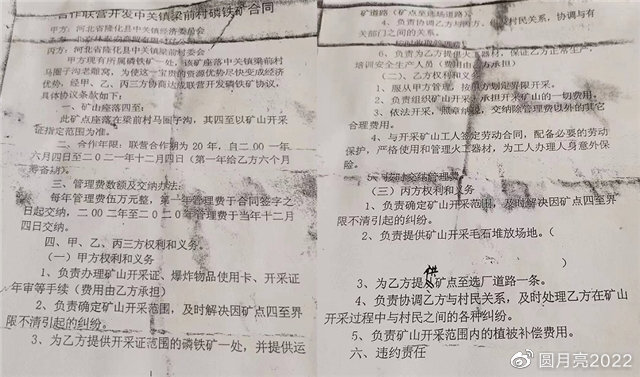 合作联营开发中关镇梁前村磷铁矿合同
甲方：河北省隆化县中关镇经济委员会
丙方：河北省隆化县中关镇梁前村委会
甲方现有所属磷铁矿一处，该矿座落中关镇梁前村
马圈子沟老雕窝，为使这一宝贵的资源优势尽快变成经济
优势，经甲、乙、丙三方协商达成联营开发磷铁矿协议，
具体协议条款如下：
一、矿山座落四至：
此矿点座落在梁前村马圈子沟，其四至以矿山开采
证指定范围为准。
二、合作年限：联营合作期为20年，自二00一年
六月四日至二0二一年十二月四日（第一年给乙方六个月
筹备期）。
三、管理费数额及交纳办法：
每年管理费伍万元整，第一年管理费于合同签字之
日起交纳，二00二年至二0二0年管理费于当年十二月
四日交纳。
四、甲、乙、丙三方权利和义务。
（一）甲方权利和义务
1、负责办理矿山开采证、爆炸物品使用卡、开采证
年审等手续（费用由乙方承担）
2、负责确定矿山开采范围，及时解决因矿点四至界
限不清引起的纠纷。
3、为乙方提供开采证范围的磷铁矿一处，并提供运
矿道路（矿点至选场道路）。
4、负责协调乙方与丙方、村民关系，协调与有
关部门之间的关系。
6、负责为乙方提供火工器材，保证乙方正常生产，
培训安全生产人员（费用由乙方承担）
（二）、乙方权利和义务
1、服从甲方管理，按甲方划定界限开采。
2、负责组织矿山开采，承担开采矿山的一切费用。
3、依法开采，照章纳税，交纳除管理费以外的其它
合理费用。
4、与开采矿山工人签定劳动合同，配备必要的劳动
保护，严格使用和管理火工器材，为工人办理人身意外保
险。
5、按时交纳管理费。
（三）丙方权利和义务
1、负责确定矿山开采范围，及时解决因矿点四至界
限不清引起的纠纷。
2、负责提供矿山开采毛石堆放场地。（
）
3、为乙方提供矿点至选厂道路一条。
4、负责协调乙方与村民关系，及时处理乙方在矿山
开采过程中与村民之间的各种纠纷。
5、负责矿山开采范围内的植被补偿费用。
六、违约责任
圆月亮2022